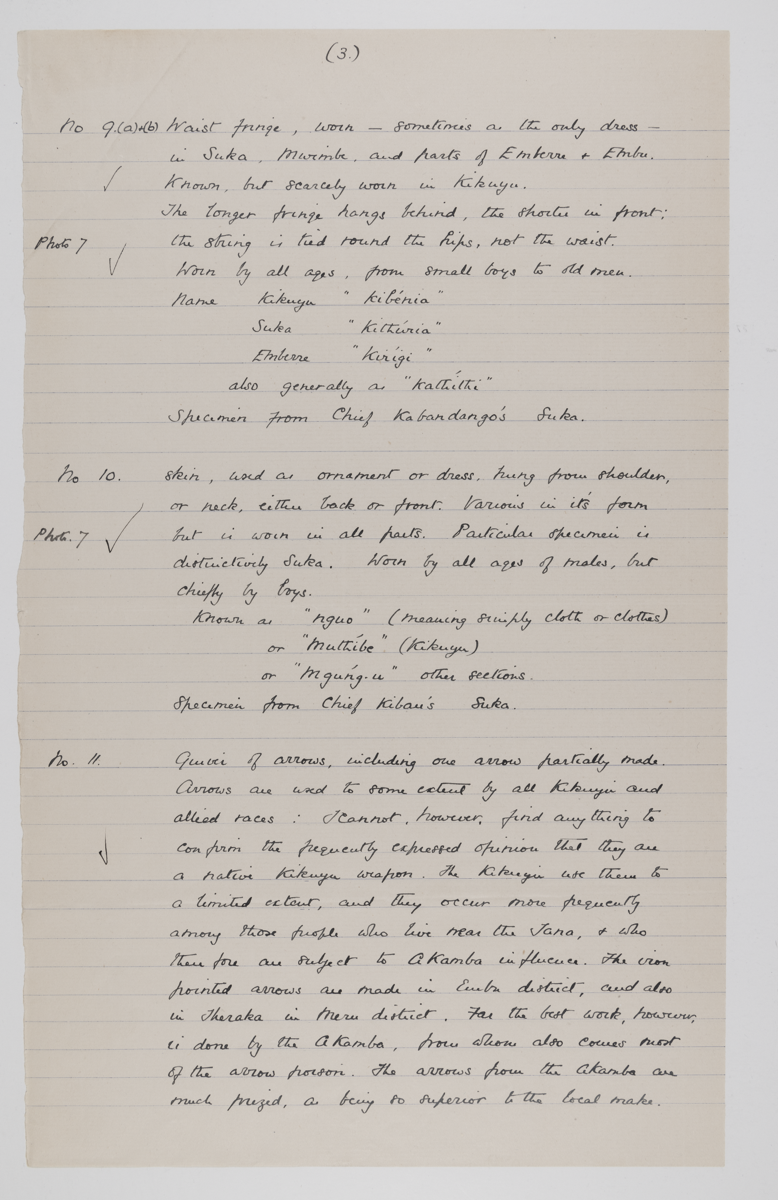 (3.)
No 9.(a)+(b) Waist fringe, worn — sometimes as the only dress —
in Suka, Mwimbe, and parts of Emberre & Embu.
Known, but scarcely worn in Kikuyu.
The longer fringe hangs behind, the shorter in front;
Photo 7 the string is tied round the hips, not the waist.
Worn by all ages, from small boys to old men.
Name Kikuyu "Kibénia"
Suka "Kithúria"
Emberre "Kirígi"
also generally as "Kathíthi"
Specimen from Chief Kabandango's Suka.
No 10. Skin, used as ornament or dress, hung from shoulder,
or neck, either back or front. Various in it's form
Photo. 7 but is worn in all parts. Particular specimen is
distinctively Suka. Worn by all ages of males, but
chiefly by boys.
Known as "nguo" (meaning simply cloth or clothes)
or "Muthíbe" (Kikuyu)
or "Mgúng.u" other sections.
Specimen from Chief Kibau's Suka.
No. 11. Quiver of arrows, including one arrow partially made.
Arrows are used to some extent by all Kikuyu and
allied races: I cannot, however, find anything to
confirm the frequently expressed opinion that they are
a native Kikuyu weapon. The Kikuyu use them to
a limited extent, and they occur more frequently
among those people who live near the Tana, & who
therefore are subject to AKamba influence. The iron
pointed arrows are made in Embu district, and also
in Theraka in Meru district. Far the best work, however,
is done by the AKamba, from whom also comes most
of the arrow poison. The arrows from the AKamba are
much prized, as being so superior to the local make.